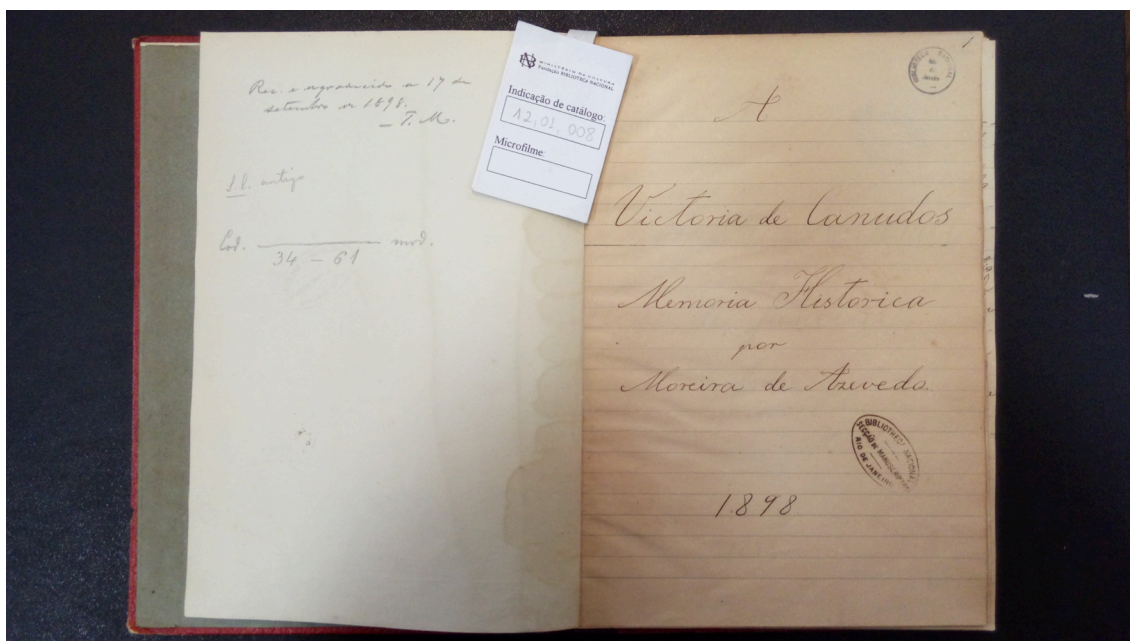 Rec. e agradecido a 17 de
setembro de 1898.
– T. M.
S. l. antigo
Cod. mod.
34 – 61
BN
MINISTÉRIO DA CULTURA
Fundação BIBLIOTECA NACIONAL
Indicação de catálogo:
12,01,008
Microfilme:
1
A
Victoria de Canudos
Memoria Historica
por
Moreira de Azevedo.
BIBLIOTHECA NACIONAL
SECÇÃO DE MANUSCRIPTOS
RIO DE JANEIRO
1898